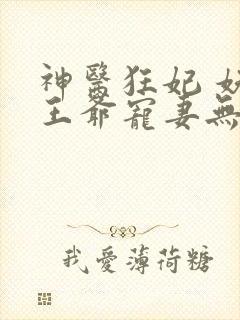 神醫狂妃
王爺寵妻無
我愛薄荷糖